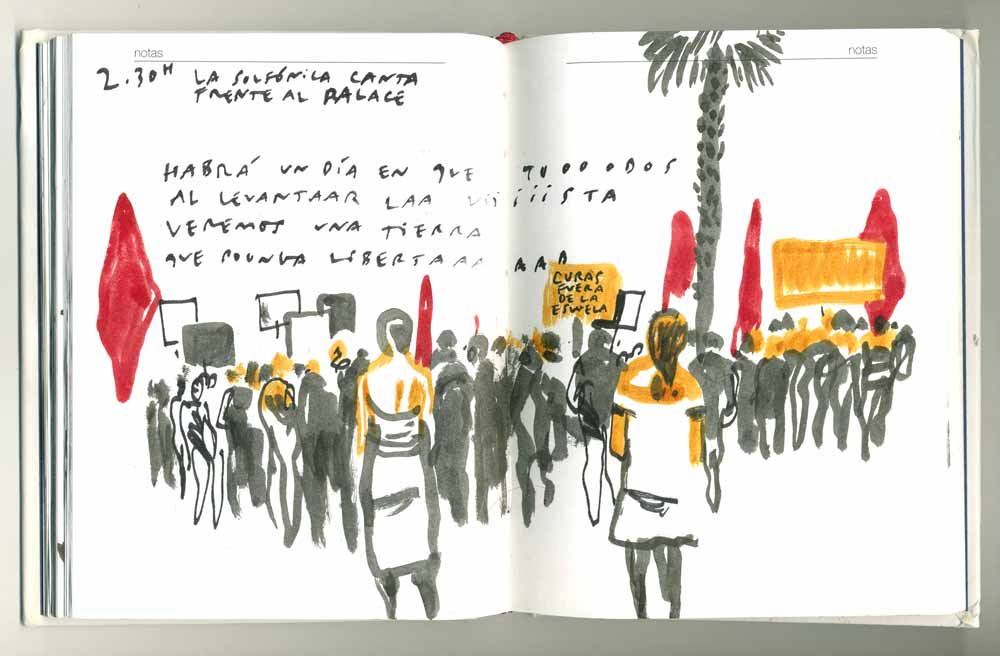 notas
notas
2.30H LA SOLFÓNICA CANTA
FRENTE AL PALACE
HABRÁ UN DÍA EN QUE TUOODODOS
AL LEVANTAAR LAA VIÍIÍISTA
VEREMOS UNA TIERRA
QUE POUNGA LIBERTAAAAAAD
CURAS
FUERA
DE LA
ESCUELA